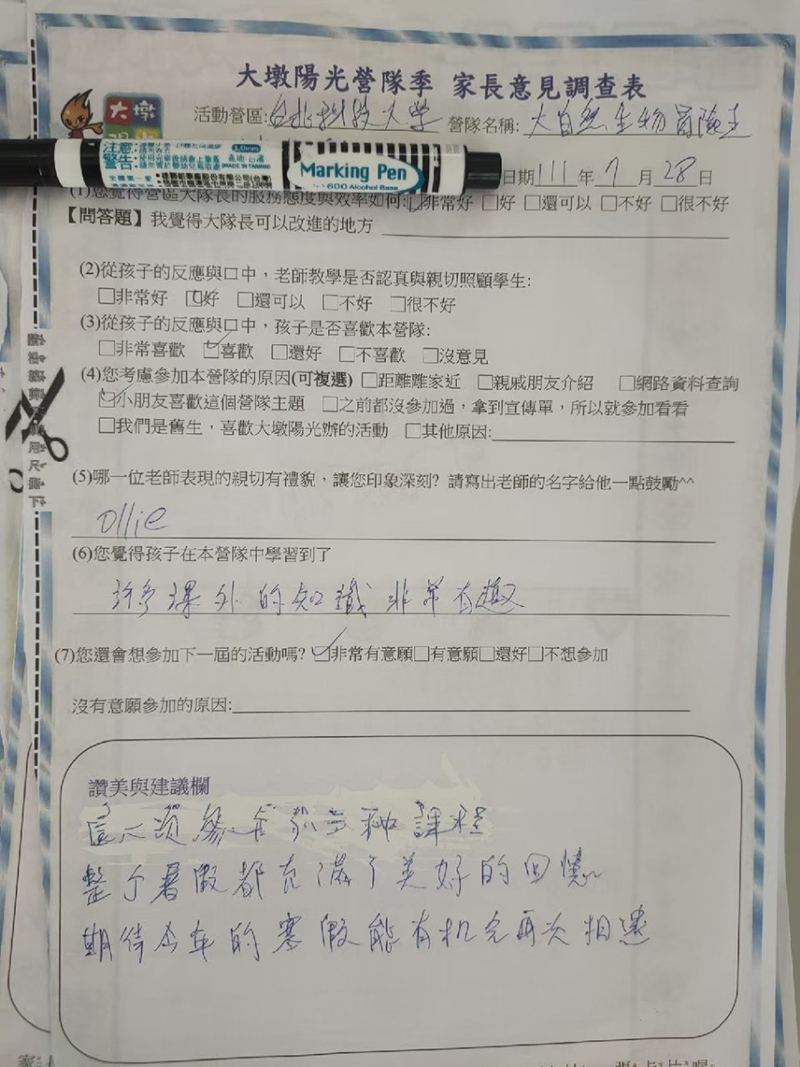 大墩陽光營隊季 家長意見調查表
大墩
活動營區:台北科技大學 營隊名稱:大自然生物冒險王
注意 1.0mm
警告 高雄 台灣 MADE IN TAIWAN
Marking Pen
600 Alcohol Base
日期111年7月28日
(1)您覺得營區大隊長的服務態度與效率如何:☑非常好 □好 □還可以 □不好 □很不好
【問答題】我覺得大隊長可以改進的地方
(2)從孩子的反應與口中，老師教學是否認真與親切照顧學生:
□非常好 ☑好 □還可以 □不好 □很不好
(3)從孩子的反應與口中，孩子是否喜歡本營隊:
□非常喜歡 ☑喜歡 □還好 □不喜歡 □沒意見
(4)您考慮參加本營隊的原因(可複選) □距離離家近 □親戚朋友介紹 □網路資料查詢
☑小朋友喜歡這個營隊主題 □之前都沒參加過，拿到宣傳單，所以就參加看看
□我們是舊生，喜歡大墩陽光辦的活動 □其他原因:
(5)哪一位老師表現的親切有禮貌，讓您印象深刻? 請寫出老師的名字給他一點鼓勵^^
Ollie
(6)您覺得孩子在本營隊中學習到了
許多課外的知識非常有趣
(7)您還會想參加下一屆的活動嗎? ☑非常有意願□有意願□還好□不想參加
沒有意願參加的原因:
讚美與建議欄
課程
整个暑假都充滿了美好的回憶
期待今年的寒假能有机会再次相遇